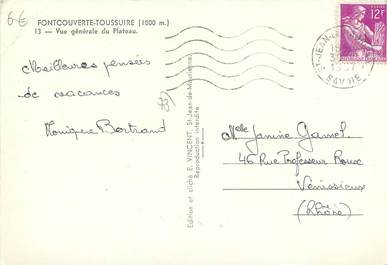 6€
FONTCOUVERTE-TOUSSUIRE (1800 m.)
13 — Vue générale du Plateau.
Meilleures pensées
de vacances
Monique Bertrand
Edition et cliché E. VINCENT, St-Jean-de-Maurienne
Reproduction interdite
ST-JEAN-DE-
SAVOIE
12F
Melle Janine Gamel
46 Rue Professeur Roux
Vénissieux
(Rhône)